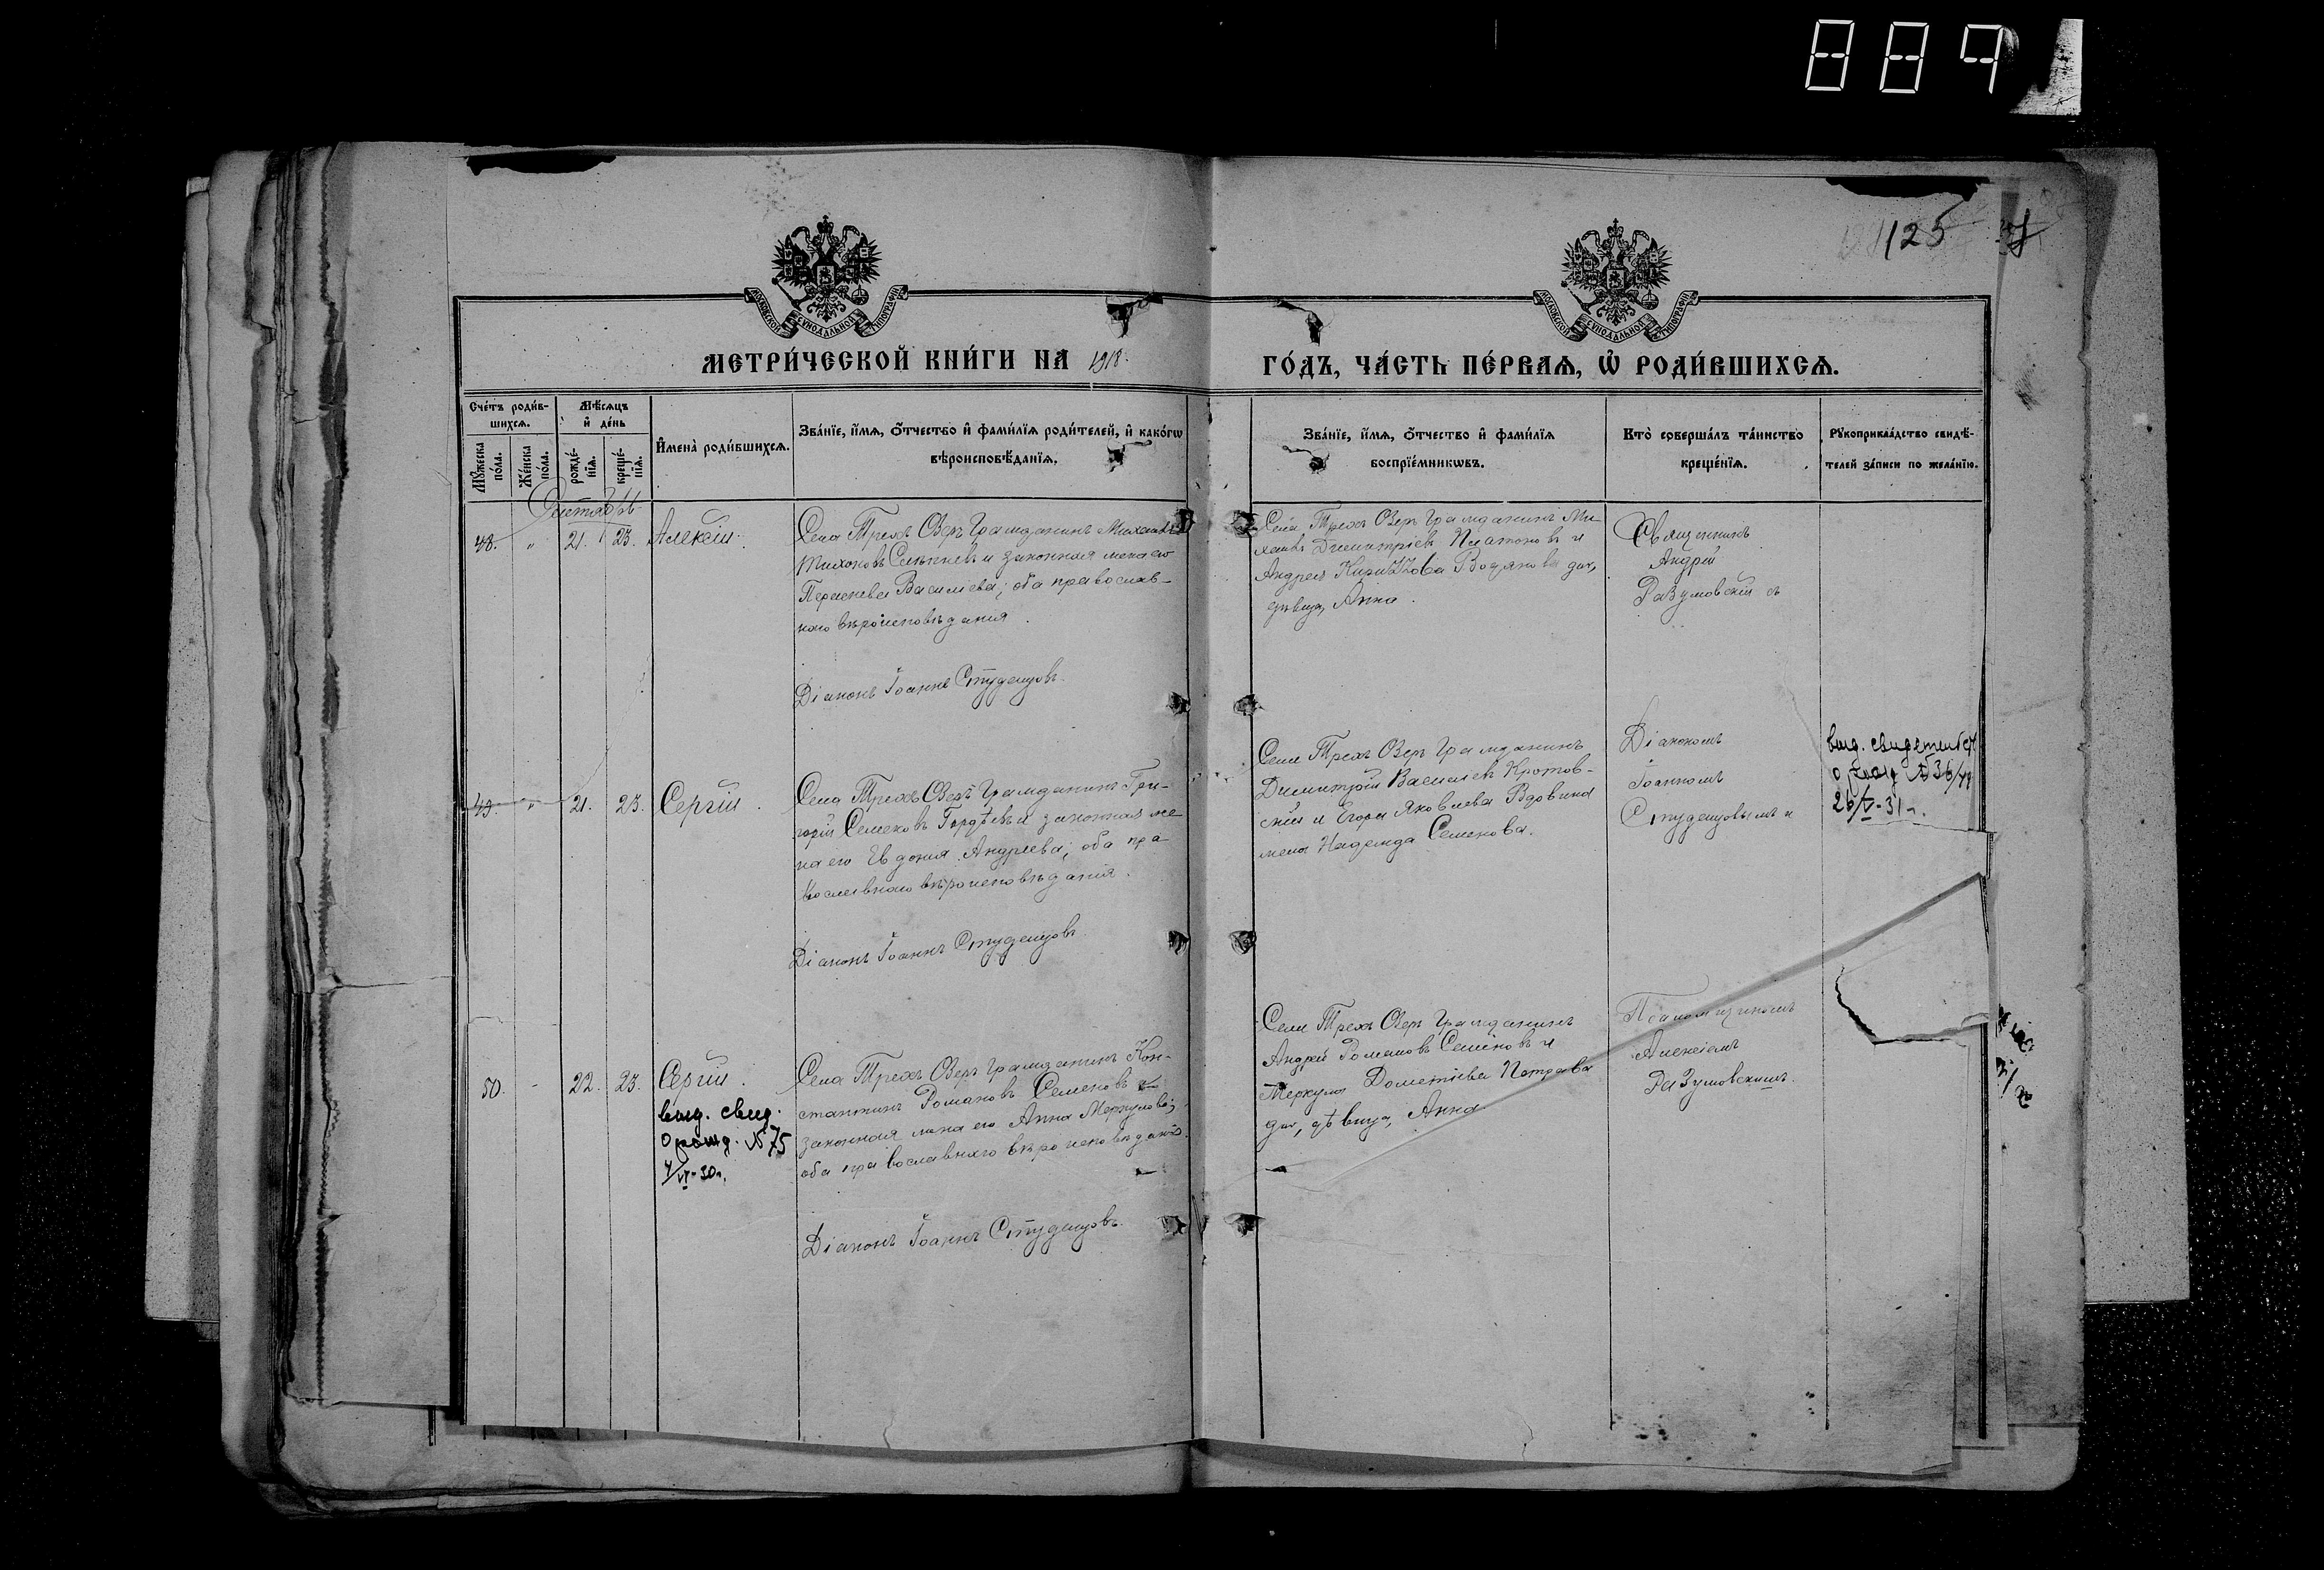 889
125
МОСКОВСКОЙ СУНОДАЛЬНОЙ ТИПОГРАФІИ
МОСКОВСКОЙ СУНОДАЛЬНОЙ ТИПОГРАФІИ
МЕТРИ́ЧЕСКОЙ КНИ́ГИ НА 1918. ГО́ДЪ, ЧА́СТЬ ПЕ́РВАѦ, Ѡ҆ РОДИ́ВШИХСѦ.
Сче́тъ роди́в-
шихсѧ.
Мꙋ́жеска по́ла.
Же́нска по́ла.
Мѣ́сѧцъ
и҆ де́нь
рожде́-
нїѧ.
креще́-
нїѧ.
И҆мена̀ роди́вшихсѧ.
Зва́нїе, и҆́мѧ, о҆́тчество и҆ фами́лїѧ роди́телей, и҆ како́гѡ
вѣроисповѣ́данїѧ.
Зва́нїе, и҆́мѧ, о҆́тчество и҆ фами́лїѧ
воспрїе́мникѡвъ.
Кто̀ соверша́лъ та́инство
креще́нїѧ.
Рꙋкоприкла́дство свидѣ́-
телей за́писи по жела́нїю.
Сентябрь
48. " 21. 23. Алексій.
Села Трехъ Озеръ гражданинъ Михаилъ
Тихоновъ и законная жена его
Васильева; оба православ-
наго вѣроисповѣданія.
Діаконъ Іоаннъ Студенцовъ.
Села Трехъ Озеръ гражданинъ Ми-
хаилъ Димитріевъ Платоновъ и
Андрея Кириллова доч,
дѣвица, Анна.
Священникъ
Андрей
Разумовскій съ
49. " 21. 23. Сергій.
Села Трехъ Озеръ гражданинъ Гри-
горій Семеновъ Гордѣевъ и законная же
на его Евдокія Андреева; оба пра-
вославнаго вѣроисповѣданія.
Діаконъ Іоаннъ Студенцовъ
Села Трехъ Озеръ гражданинъ
Димитрій Васильевъ Кротов-
скій и Егора Яковлева Вдовина
жена Надежда Семенова.
Діакономъ
Іоанномъ
Студенцовымъ и
выд. свидетельст
о рожд №36/49
26/V-31г.
50. " 22. 23. Сергій.
выд. свид.
о рожд. №75
4/VI-30г.
Села Трехъ Озеръ гражданинъ Кон-
стантинъ Романовъ Семеновъ и
законная жена его Анна Меркулова;
оба православнаго вѣроисповѣданія.
Діаконъ Іоаннъ Студенцовъ.
Села Трехъ Озеръ гражданинъ
Андрей Романовъ Семеновъ и
Меркула Дометіева Петрова
доч, дѣвица, Анна
Псаломщикомъ
Алексіемъ
Разумовскимъ.